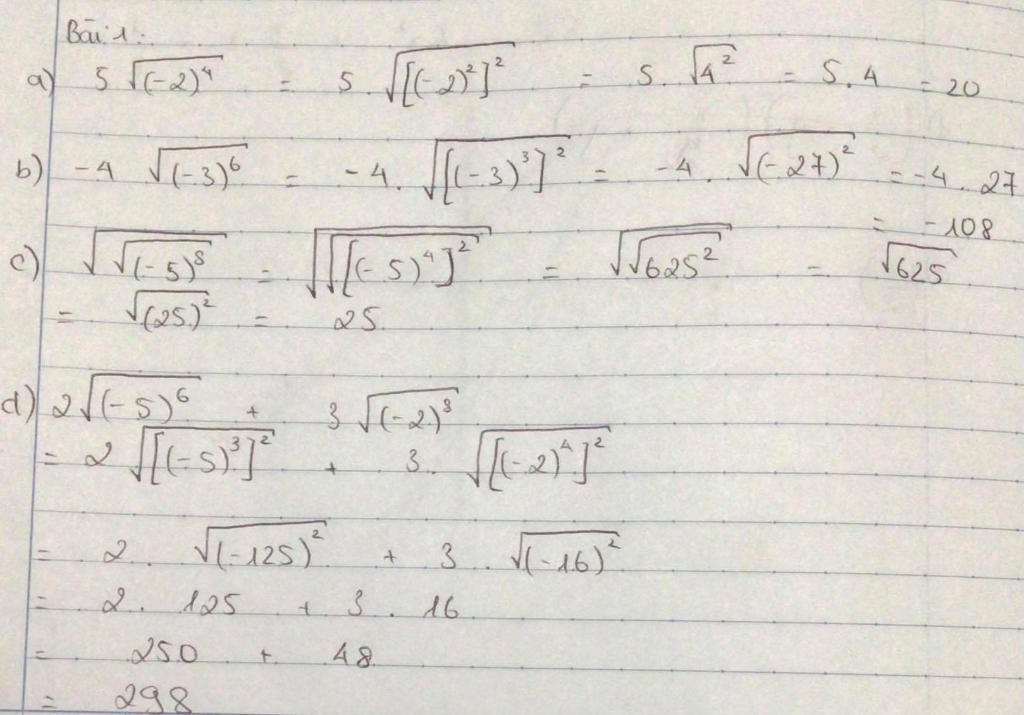 Bài 1:
a) 5 √(-2)⁴ = 5. √[(-2)²]² = 5. √4² = 5.4 = 20
b) -4 √(-3)⁶ = -4. √[(-3)³]² = -4. √(-27)² = -4. 27
= -108
c) √√(-5)⁸ = √√[(-5)⁴]² = √√625² = √625
= √(25)² = 25
d) 2√(-5)⁶ + 3 √(-2)⁸
= 2 √[(-5)³]² + 3. √[(-2)⁴]²
= 2. √(-125)² + 3. √(-16)²
= 2. 125 + 3. 16
= 250 + 48
= 298